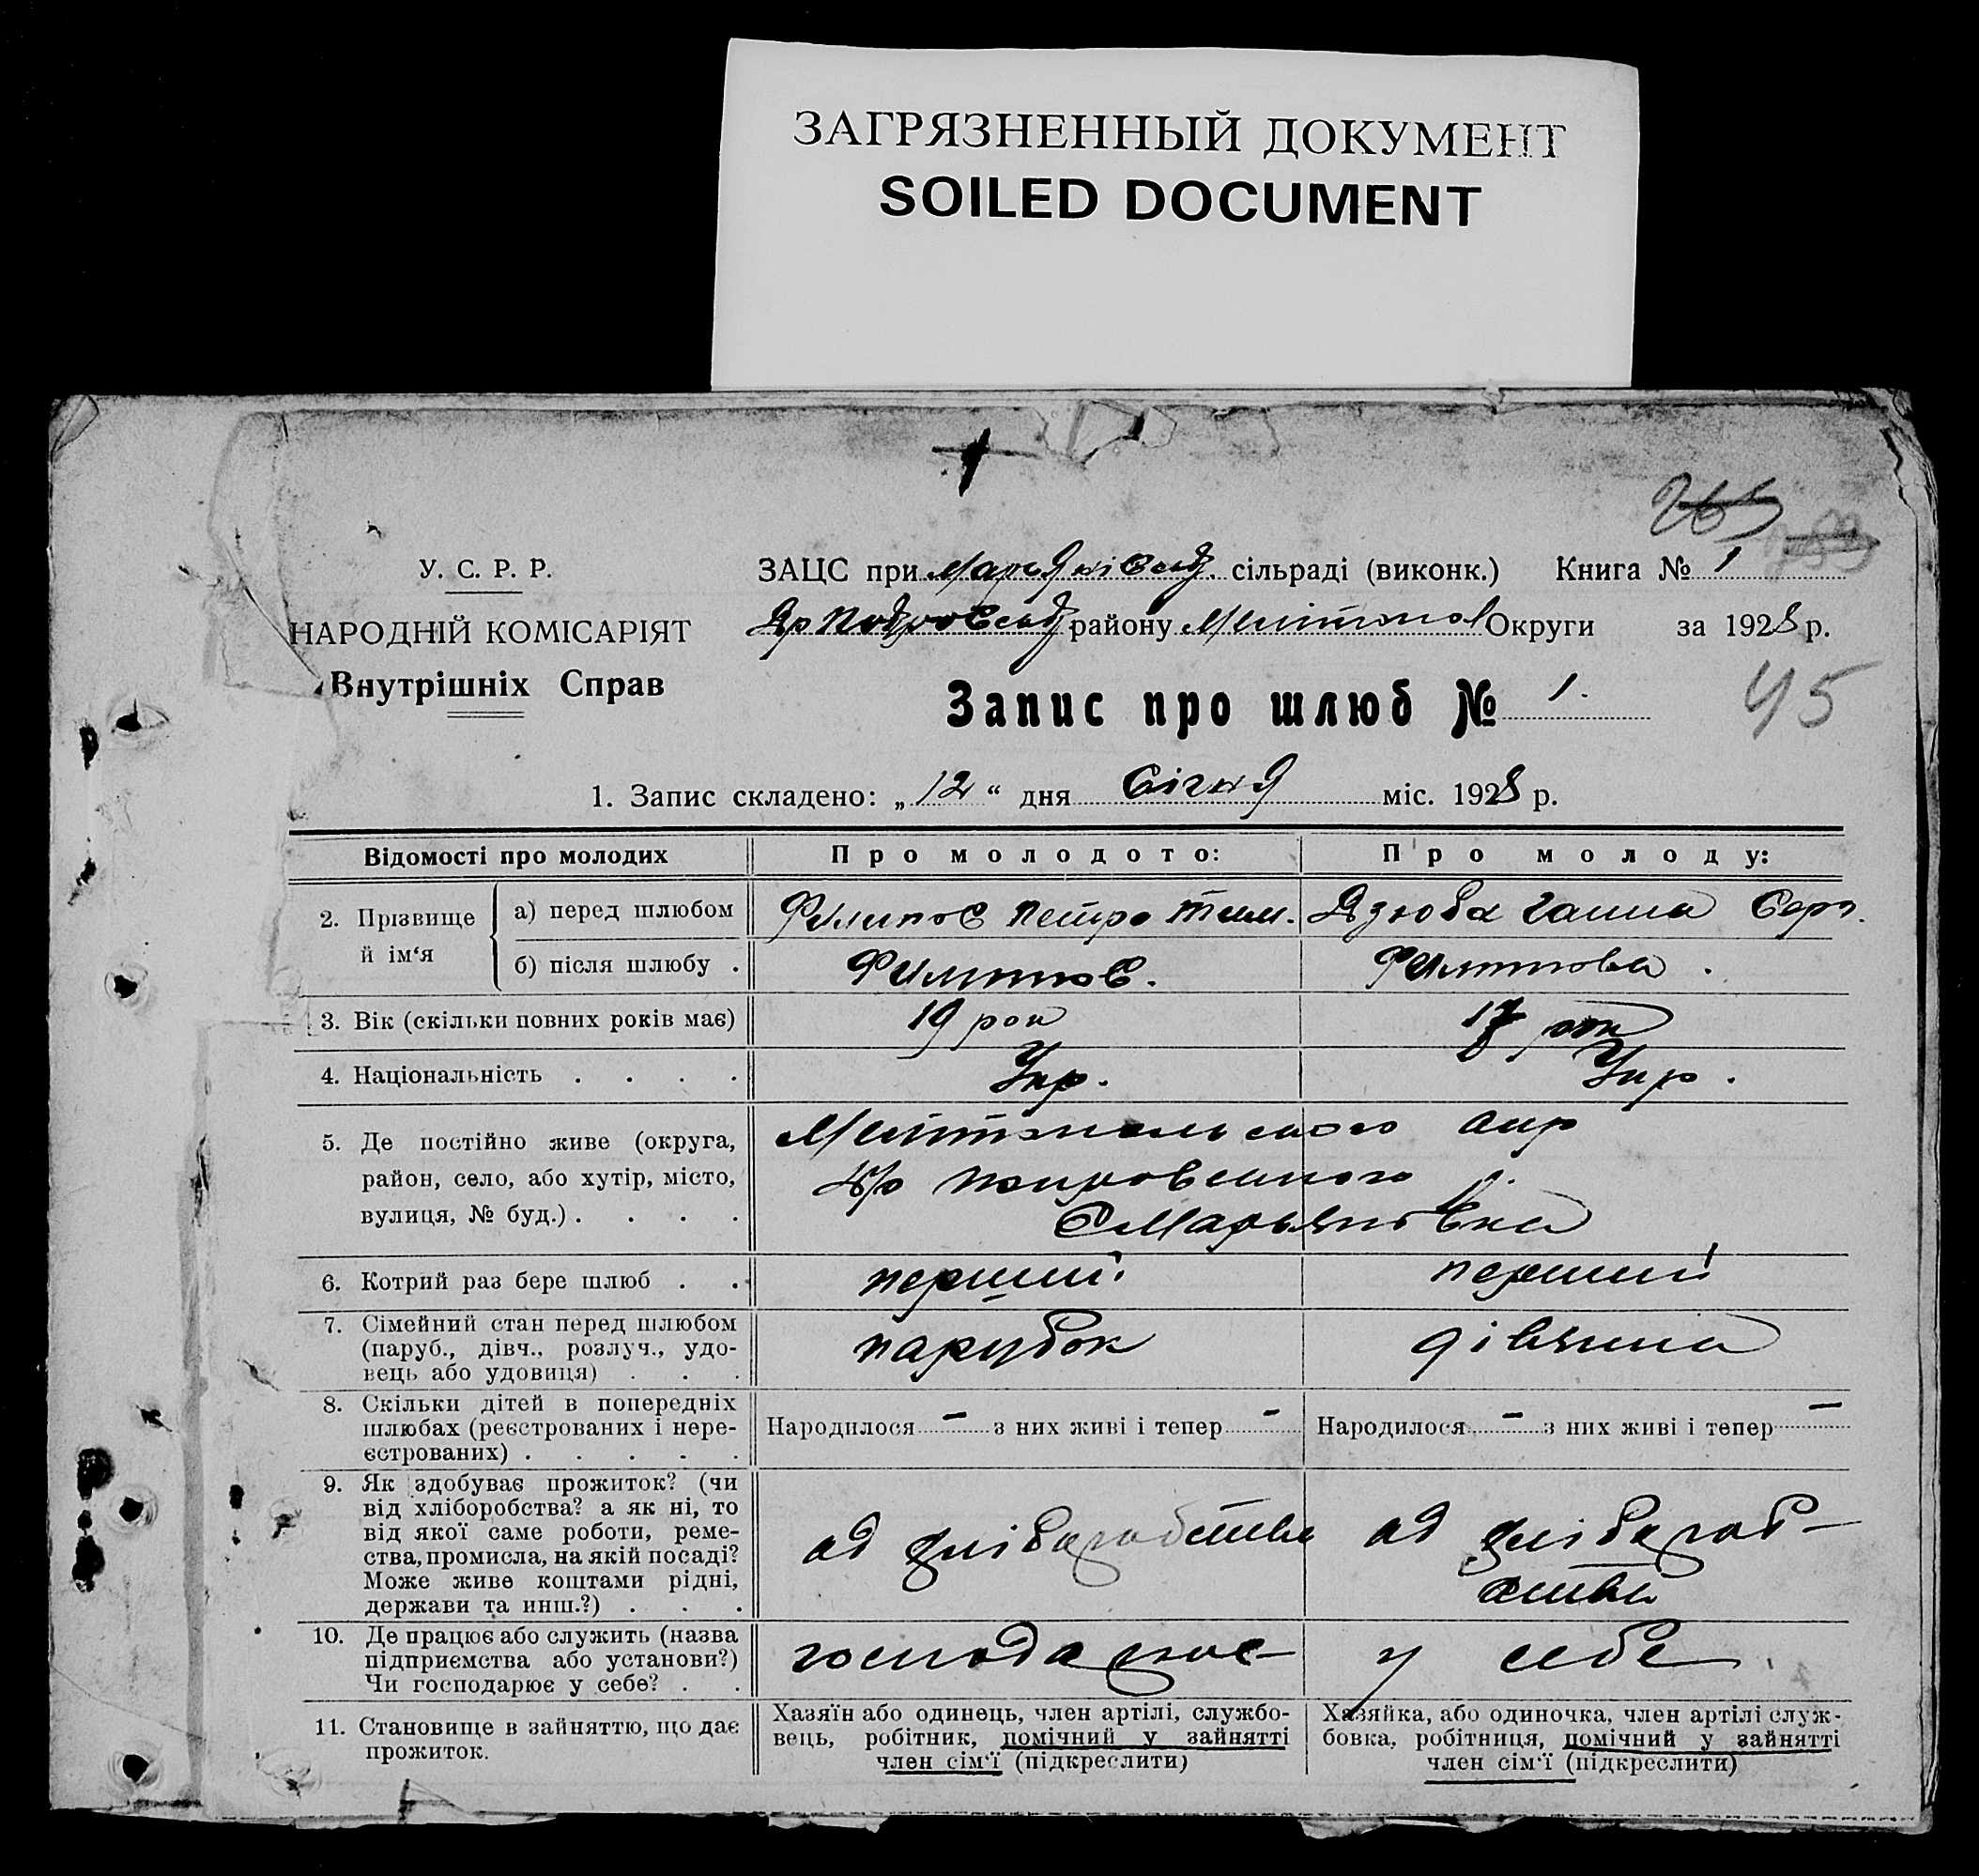 ЗАГРЯЗНЕННЫЙ ДОКУМЕНТ
SOILED DOCUMENT
265
У. С. Р. Р.
ЗАЦС при Марьянівськ. сільраді (виконк.) Книга № 1
НАРОДНІЙ КОМІСАРІЯТ
Др Покровськ району Мелітопол Округи за 1928 р.
Внутрішніх Справ
Запис про шлюб № 1.
45
1. Запис складено: „12“ дня Січня міс. 1928 р.
Відомості про молодих
Про молодого:
Про молоду:
2. Прізвище й ім‘я
а) перед шлюбом
Филипов Петро Тим.
Дзюба Ганна Серг.
б) після шлюбу .
Филипов.
Филипова.
3. Вік (скільки повних років має)
19 рок
рок
4. Національність . . . .
Укр.
Укр.
5. Де постійно живе (округа,
район, село, або хутір, місто,
вулиця, № буд.) . . . .
Мелітопольського окр
Др Покровського
С Марьянівка
6. Котрий раз бере шлюб . .
перший
перший
7. Сімейний стан перед шлюбом
(паруб., дівч., розлуч., удо-
вець або удовиця) . . .
парубок
дівчина
8. Скільки дітей в попередніх
шлюбах (реєстрованих і нере-
єстрованих) . . . . .
Народилося – з них живі і тепер –
Народилося – з них живі і тепер –
9. Як здобуває прожиток? (чи
від хліборобства? а як ні, то
від якої саме роботи, реме-
ства, промисла, на якій посаді?
Може живе коштами рідні,
держави та инш.?) . . .
од хліборобства
од хлібороб-
ства
10. Де працює або служить (назва
підприємства або установи?)
Чи господарює у себе? . .
господарює
у себе
11. Становище в зайняттю, що дає
прожиток.
Хазяїн або одинець, член артілі, службо-
вець, робітник, помічний у зайнятті
член сім‘ї (підкреслити)
Хазяйка, або одиночка, член артілі служ-
бовка, робітниця, помічний у зайнятті
член сім‘ї (підкреслити)